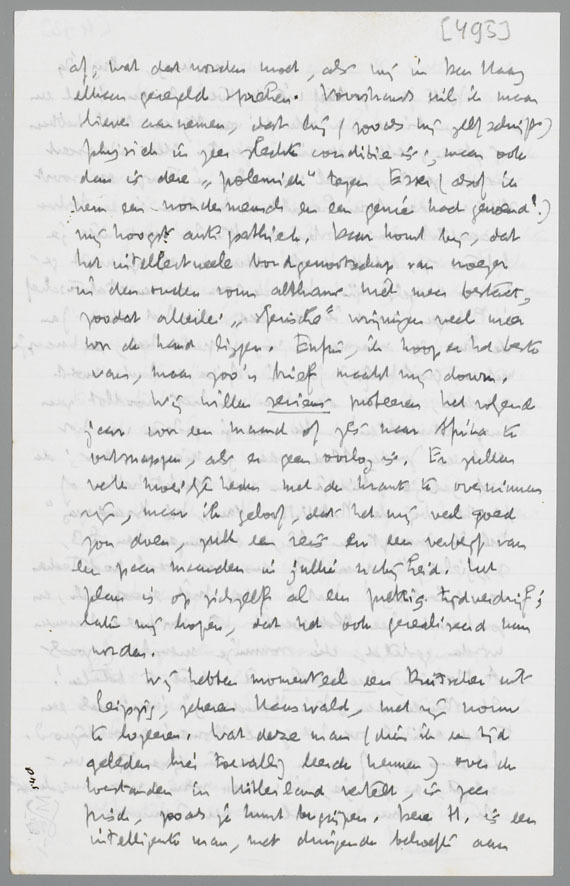 [495]
af, wat dat worden moet, als wij in Den Haag
elkaar geregeld spreken. Voorshands wil ik maar
liever aannemen, dat hij (zooals hij zelf schrijft)
physiek in zeer slechte conditie is; maar ook
dan is deze „polemiek" tegen Essers (alsof ik
hem een wondermensch en een genie had genoemd!)
mij hoogst antipathiek. Daar komt bij, dat
het intellectueele bondgenootschap van vroeger
in den ouden vorm althans niet meer bestaat,
zoodat allerlei „sferische" wrijvingen veel meer
voor de hand liggen. Enfin, ik hoop er het beste
van, maar zoo'n brief maakt mij down.
Wij willen serieus probeeren het volgend
jaar voor een maand of zes naar Afrika te
ontsnappen, als er geen oorlog is. Er zullen
vele moeilijkheden met de krant te overwinnen
zijn, maar ik geloof, dat het mij veel goed
zou doen, zulk een reis en een verblijf van
een paar maanden in jullie nabijheid. Het
plan is op zichzelf al een prettig tijdverdrijf;
laten wij hopen, dat het ook gerealiseerd kan
worden.
Wij hebben momenteel een Duitscher uit
Leipzig, geheeten Hauswald, met zijn vrouw
te logeeren. Wat deze man (dien ik een tijd
geleden hier toevallig leerde kennen) over de
toestanden in Hitlerland vertelt, is zeer
, zooals je kunt begrijpen. Deze H. is een
intelligente man, met dringende behoefte aan
540